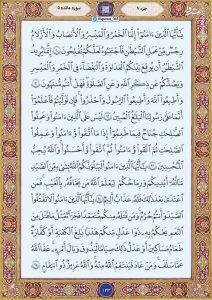 جزء ۷
سوره مائده ۵
يَٰٓأَيُّهَا ٱلَّذِينَ ءَامَنُوٓا۟ إِنَّمَا ٱلْخَمْرُ وَٱلْمَيْسِرُ وَٱلْأَنصَابُ وَٱلْأَزْلَٰمُ
رِجْسٌ مِّنْ عَمَلِ ٱلشَّيْطَٰنِ فَٱجْتَنِبُوهُ لَعَلَّكُمْ تُفْلِحُونَ ٩٠ إِنَّمَا يُرِيدُ
ٱلشَّيْطَٰنُ أَن يُوقِعَ بَيْنَكُمُ ٱلْعَدَٰوَةَ وَٱلْبَغْضَآءَ فِى ٱلْخَمْرِ وَٱلْمَيْسِرِ
وَيَصُدَّكُمْ عَن ذِكْرِ ٱللَّهِ وَعَنِ ٱلصَّلَوٰةِ فَهَلْ أَنتُم مُّنتَهُونَ ٩١
وَأَطِيعُوا۟ ٱللَّهَ وَأَطِيعُوا۟ ٱلرَّسُولَ وَٱحْذَرُوا۟ فَإِن تَوَلَّيْتُمْ فَٱعْلَمُوٓا۟
أَنَّمَا عَلَىٰ رَسُولِنَا ٱلْبَلَٰغُ ٱلْمُبِينُ ٩٢ لَيْسَ عَلَى ٱلَّذِينَ ءَامَنُوا۟ وَعَمِلُوا۟
ٱلصَّٰلِحَٰتِ جُنَاحٌ فِيمَا طَعِمُوٓا۟ إِذَا مَا ٱتَّقَوا۟ وَّءَامَنُوا۟ وَعَمِلُوا۟
ٱلصَّٰلِحَٰتِ ثُمَّ ٱتَّقَوا۟ وَّءَامَنُوا۟ ثُمَّ ٱتَّقَوا۟ وَّأَحْسَنُوا۟ وَٱللَّهُ يُحِبُّ
ٱلْمُحْسِنِينَ ٩٣ يَٰٓأَيُّهَا ٱلَّذِينَ ءَامَنُوا۟ لَيَبْلُوَنَّكُمُ ٱللَّهُ بِشَىْءٍ مِّنَ ٱلصَّيْدِ
تَنَالُهُۥٓ أَيْدِيكُمْ وَرِمَاحُكُمْ لِيَعْلَمَ ٱللَّهُ مَن يَخَافُهُۥ بِٱلْغَيْبِ فَمَنِ
ٱعْتَدَىٰ بَعْدَ ذَٰلِكَ فَلَهُۥ عَذَابٌ أَلِيمٌ ٩٤ يَٰٓأَيُّهَا ٱلَّذِينَ ءَامَنُوا۟ لَا تَقْتُلُوا۟
ٱلصَّيْدَ وَأَنتُمْ حُرُمٌ وَمَن قَتَلَهُۥ مِنكُم مُّتَعَمِّدًا فَجَزَآءٌ مِّثْلُ مَا قَتَلَ
مِنَ ٱلنَّعَمِ يَحْكُمُ بِهِۦ ذَوَا عَدْلٍ مِّنكُمْ هَدْيًۢا بَٰلِغَ ٱلْكَعْبَةِ أَوْ كَفَّٰرَةٌ
طَعَامُ مَسَٰكِينَ أَوْ عَدْلُ ذَٰلِكَ صِيَامًا لِّيَذُوقَ وَبَالَ أَمْرِهِۦ عَفَا ٱللَّهُ
عَمَّا سَلَفَ وَمَنْ عَادَ فَيَنتَقِمُ ٱللَّهُ مِنْهُ وَٱللَّهُ عَزِيزٌ ذُو ٱنتِقَامٍ ٩٥
١٢٣